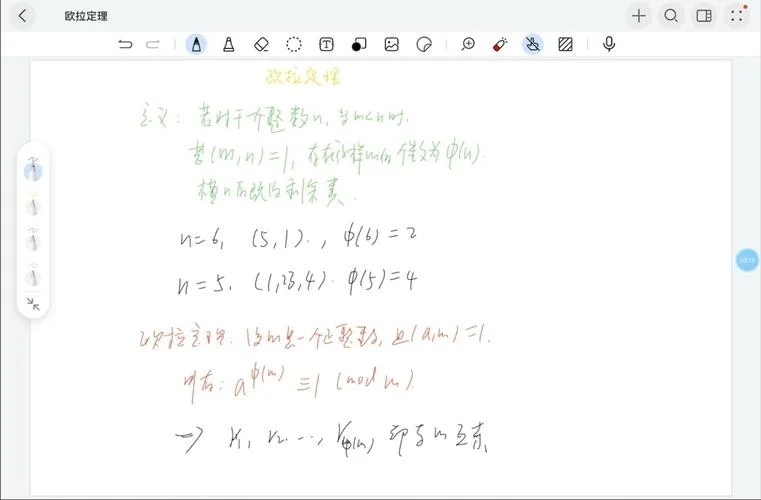 欧拉定理
欧拉定理
定义: 若对于个整数n, 当m<n时,
若(m,n)=1, 存在这样m的个数为φ(n).
模n的既约剩余类.
n=6, (5,1)., φ(6)=2
n=5. (1,23,4). φ(5)=4
欧拉定理. 设m是一个正整数, 且(a,m)=1.
则有: a^φ(m) ≡1 (mod m).
03:19
⇒ r1, r2. ..., rφ(m) 即与m互素.